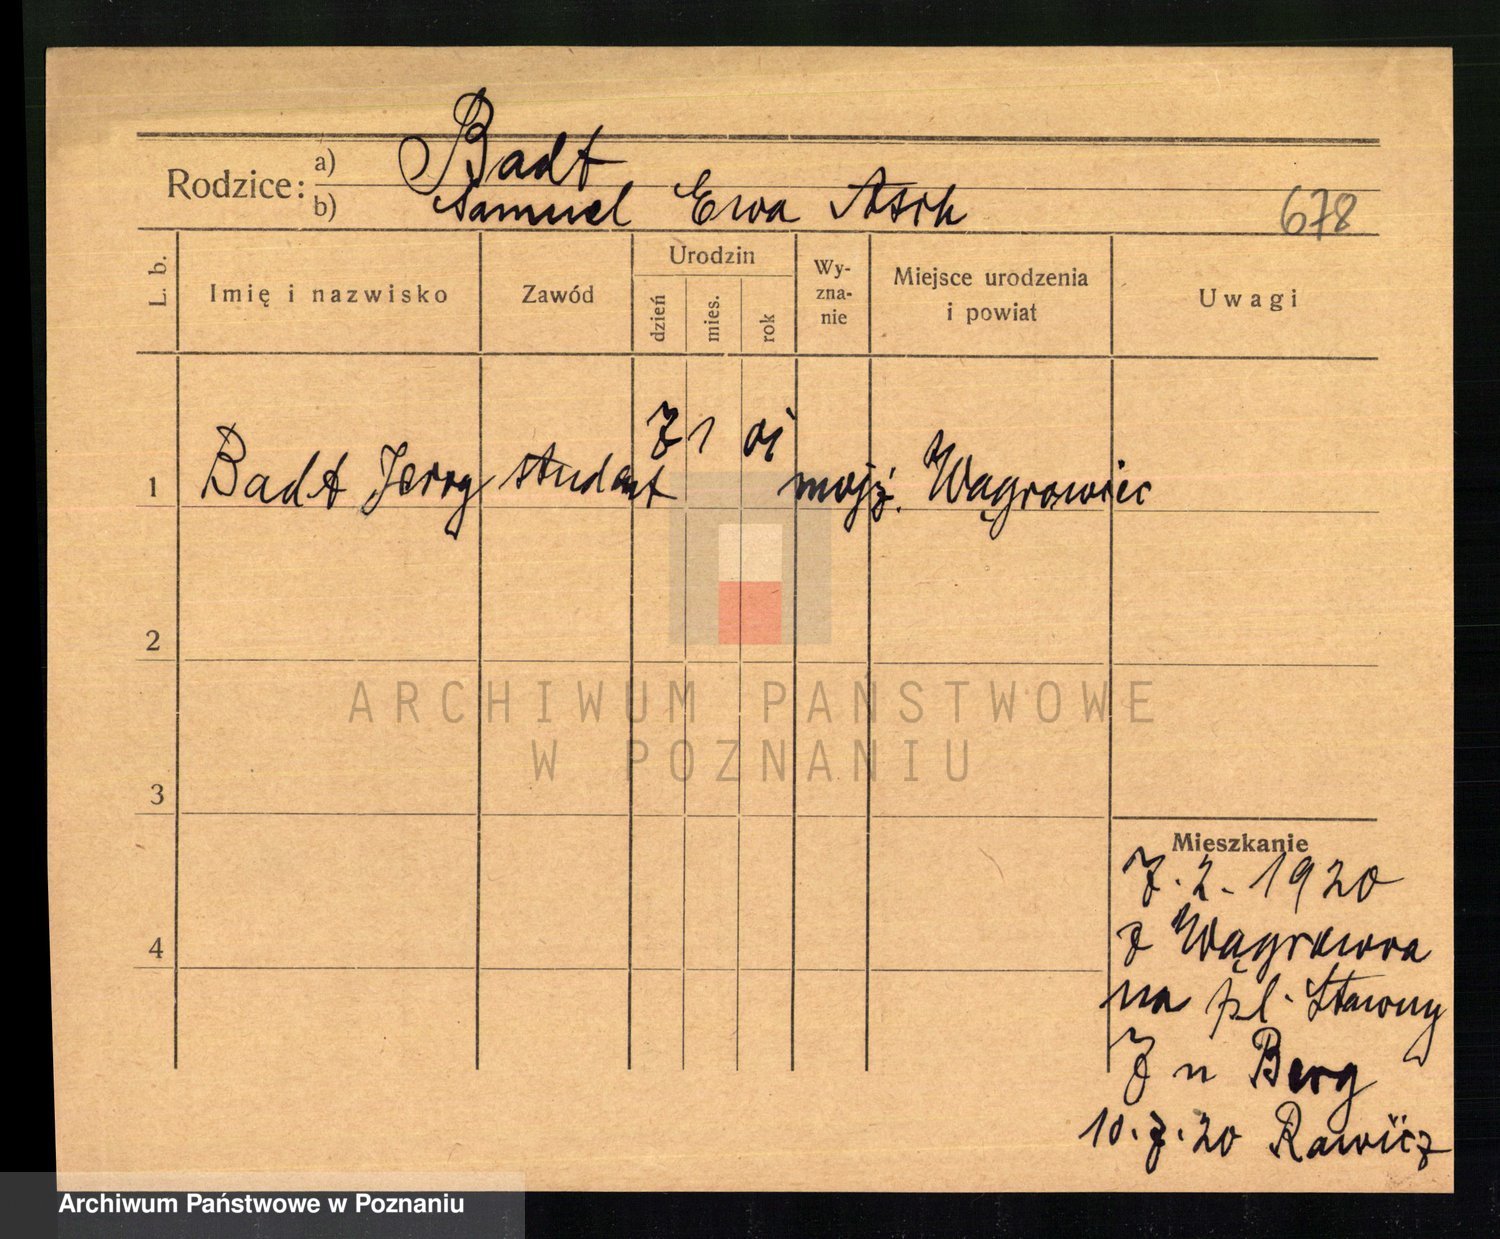 Rodzice: a) Badt
b) Samuel Ewa Asch
678
L. b.
Imię i nazwisko
Zawód
Urodzin
dzień
mies.
rok
Wy-
zna-
nie
Miejsce urodzenia
i powiat
Uwagi
1 Badt Jerzy student 7 1 01 mojż. Wągrowiec
2
3
4
Mieszkanie
7. 2. 1920
z Wągrowca
na pl. Stawny
7 u Berg
10. 7. 20 Rawicz
ARCHIWUM PAŃSTWOWE
W POZNANIU
Archiwum Państwowe w Poznaniu